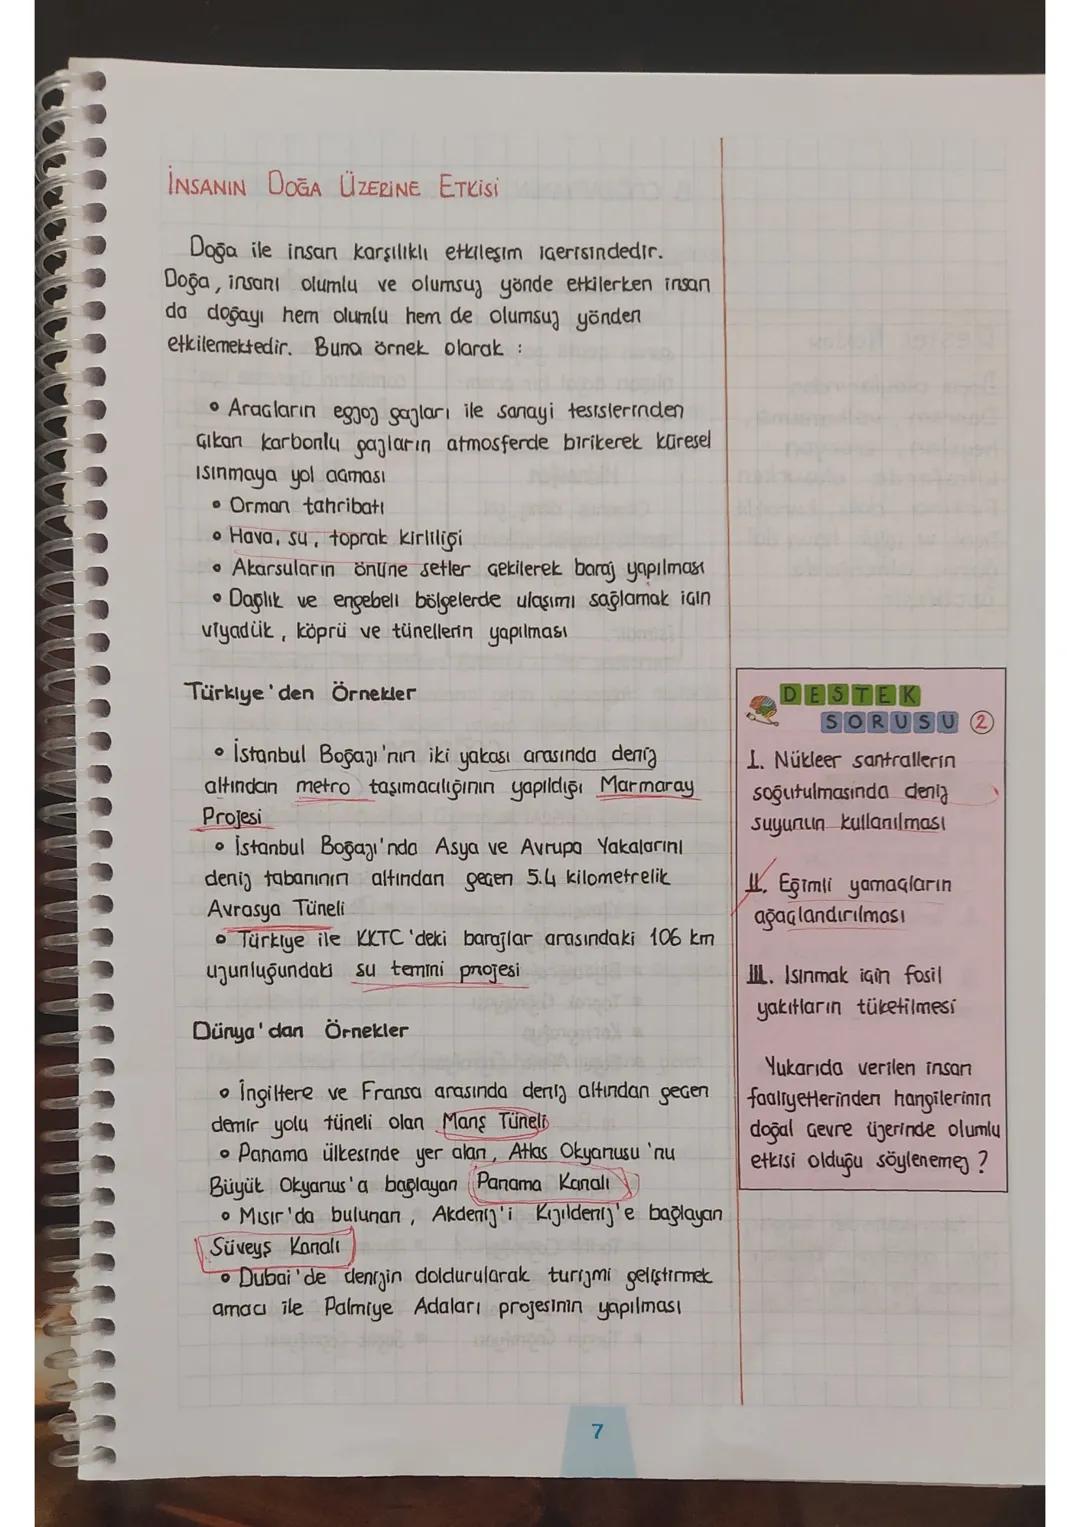 İNSANIN DOĞA ÜZERİNE ETKİSİ
Doğa ile insan karşılıklı etkileşim içerisindedir.
Doğa, insanı olumlu ve olumsuz yönde etkilerken insan
da doğayı hem olumlu hem de olumsuz yönden
etkilemektedir. Buna örnek olarak :
• Araçların egzoz gazları ile sanayi tesislerinden
çıkan karbonlu gazların atmosferde birikerek küresel
ısınmaya yol açması
• Orman tahribatı
• Hava, su, toprak kirliliği
• Akarsuların önüne setler çekilerek baraj yapılması
• Dağlık ve engebeli bölgelerde ulaşımı sağlamak için
viyadük, köprü ve tünellerin yapılması
Türkiye'den Örnekler
• İstanbul Boğazı'nın iki yakası arasında deniz
altından metro taşımacılığının yapıldığı Marmaray
Projesi
• İstanbul Boğazı'nda Asya ve Avrupa Yakalarını
deniz tabanının altından geçen 5.4 kilometrelik
Avrasya Tüneli
• Türkiye ile KKTC'deki barajlar arasındaki 106 km
uzunluğundaki su temini projesi
Dünya'dan Örnekler
• İngiltere ve Fransa arasında deniz altından geçen
demir yolu tüneli olan Manş Tüneli
• Panama ülkesinde yer alan, Atlas Okyanusu'nu
Büyük Okyanus'a bağlayan Panama Kanalı
• Mısır'da bulunan, Akdeniz'i Kızıldeniz'e bağlayan
Süveyş Kanalı
• Dubai'de denizin doldurularak turizmi geliştirmek
amacı ile Palmiye Adaları projesinin yapılması
DESTEK
SORUSU 2
I. Nükleer santrallerin
soğutulmasında deniz
suyunun kullanılması
II. Eğimli yamaçların
ağaçlandırılması
III. Isınmak için fosil
yakıtların tüketilmesi
Yukarıda verilen insan
faaliyetlerinden hangilerinin
doğal çevre üzerinde olumlu
etkisi olduğu söylenemez ?
7